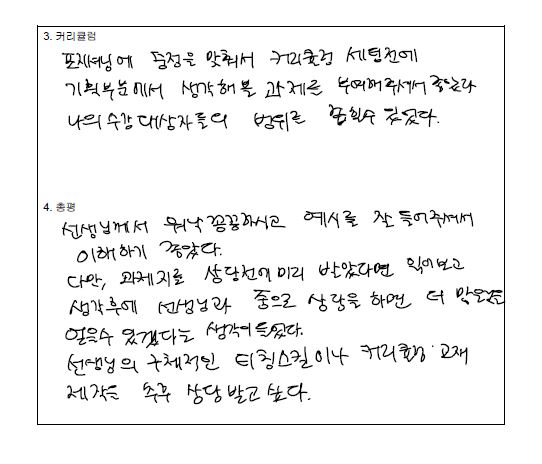 3. 커리큘럼
포지셔닝에 중점을 맞춰서 커리큘럼 세팅전에
기획부분에서 생각해볼 과제를 부여해주셔서 좋았다
나의 수강대상자들의 범위를 좁힐수 있었다.
4. 총평
선생님께서 워낙 꼼꼼하시고 예시를 잘 들어주셔서
이해하기 좋았다.
다만, 과제지를 상담전에 미리 받았다면 읽어보고
생각후에 선생님과 줌으로 상담을 하면 더 많은것을
얻을수 있겠다는 생각이 들었다.
선생님의 구체적인 티칭스킬이나 커리큘럼·교재
제작도 추후 상담받고 싶다.